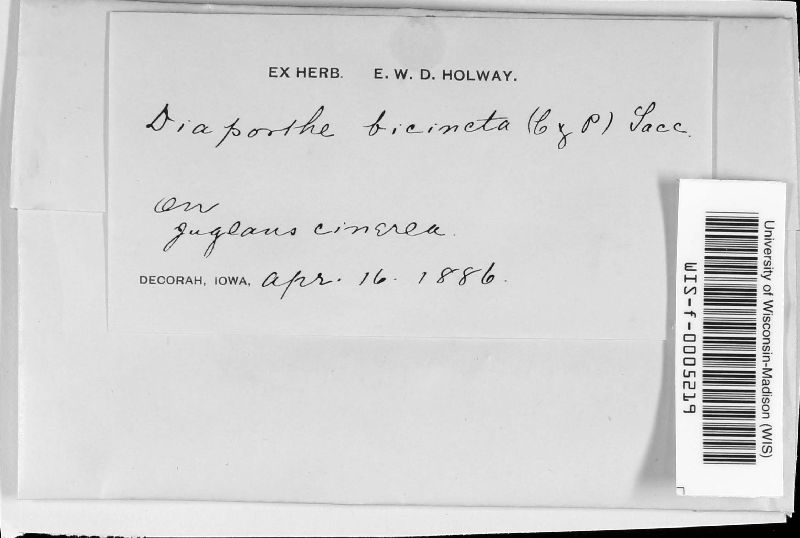 EX HERB. E. W. D. HOLWAY.
Diaporthe bicincta (C & P) Sacc.
On
Juglans cinerea.
DECORAH, IOWA, Apr. 16. 1886.
University of Wisconsin-Madison (WIS)
WIS-f-0005219